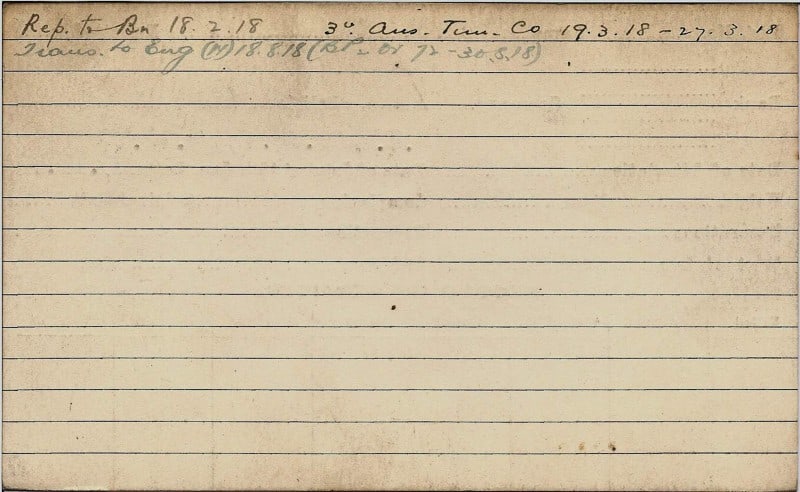 Rep. to Bn 18.2.18 3rd Aus. Tun. Co 19.3.18 - 27.3.18
Trans. to Eng (H) 18.8.18 (KP. Or 72 - 30.8.18)